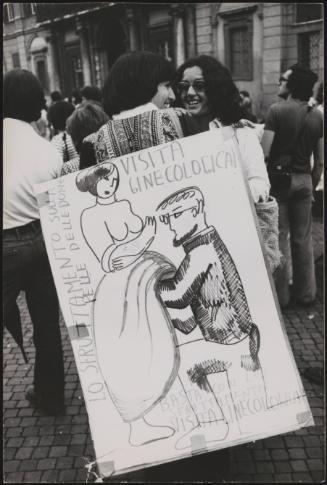 VISITA
GINECOLOGICA!
LO SFRUTTAMENTO SULLA
PELLE DELLE DONNE
BASTA CON LO
SFRUTTAMENTO
VISITA GINECOLOGICA